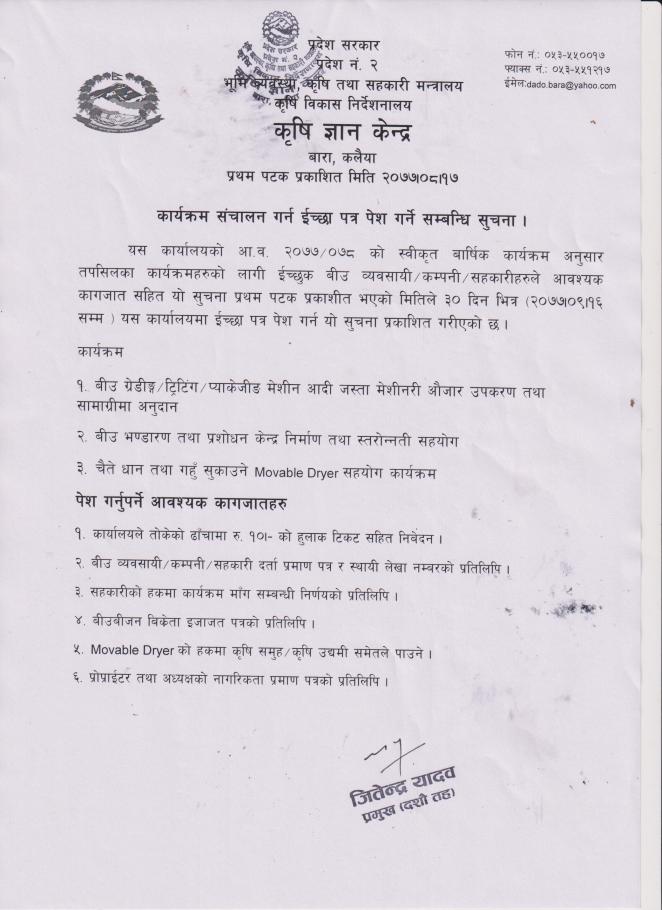 प्रदेश सरकार
प्रदेश नं. २
भूमि व्यवस्था, कृषि तथा सहकारी मन्त्रालय
कृषि विकास निर्देशनालय
कृषि ज्ञान केन्द्र
बारा, कलैया
प्रथम पटक प्रकाशित मिति २०७७।०८।१७
फोन नं.: ०५३-५५००१७
फ्याक्स नं.: ०५३-५५१२१७
ईमेल:dado.bara@yahoo.com
कार्यक्रम संचालन गर्न ईच्छा पत्र पेश गर्ने सम्बन्धि सुचना ।
यस कार्यालयको आ.व. २०७७/०७८ को स्वीकृत बार्षिक कार्यक्रम अनुसार
तपसिलका कार्यक्रमहरुको लागी ईच्छुक बीउ व्यवसायी/कम्पनी/सहकारीहरुले आवश्यक
कागजात सहित यो सुचना प्रथम पटक प्रकाशीत भएको मितिले ३० दिन भित्र (२०७७।०९।१६
सम्म ) यस कार्यालयमा ईच्छा पत्र पेश गर्न यो सुचना प्रकाशित गरीएको छ ।
कार्यक्रम
१. बीउ ग्रेडीङ्ग/ट्रिटिंग/प्याकेजीङ मेशीन आदी जस्ता मेशीनरी औजार उपकरण तथा
सामाग्रीमा अनुदान
२. बीउ भण्डारण तथा प्रशोधन केन्द्र निर्माण तथा स्तरोन्नती सहयोग
३. चैते धान तथा गहुँ सुकाउने Movable Dryer सहयोग कार्यक्रम
पेश गर्नुपर्ने आवश्यक कागजातहरु
१. कार्यालयले तोकेको ढाँचामा रु. १०।- को हुलाक टिकट सहित निबेदन ।
२. बीउ व्यवसायी/कम्पनी/सहकारी दर्ता प्रमाण पत्र र स्थायी लेखा नम्बरको प्रतिलिपि ।
३. सहकारीको हकमा कार्यक्रम माँग सम्बन्धी निर्णयको प्रतिलिपि ।
४. बीउबीजन बिकेता इजाजत पत्रको प्रतिलिपि ।
५. Movable Dryer को हकमा कृषि समुह/कृषि उद्यमी समेतले पाउने ।
६. प्रोप्राईटर तथा अध्यक्षको नागरिकता प्रमाण पत्रको प्रतिलिपि ।
जितेन्द्र यादव
प्रमुख (दशौ तह)